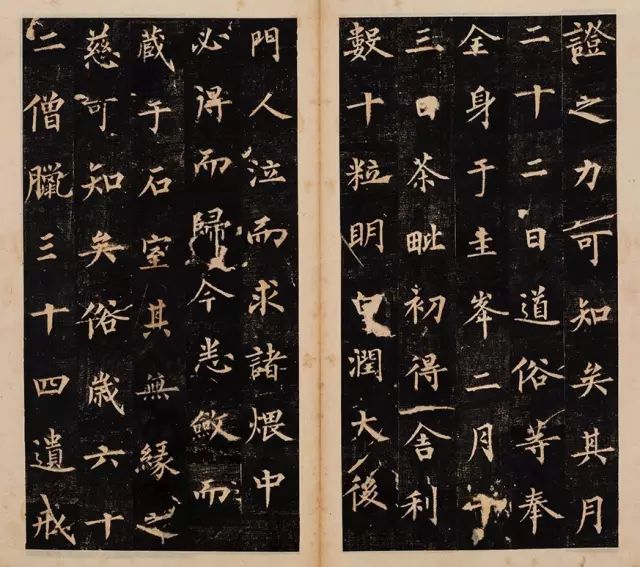 證之力可知矣其月
二十二日道俗等奉
全身于圭峯二月十
三日茶毗初得舍利
數十粒明白潤大後
門人泣而求諸煨中
必得而歸今悉斂而
藏于石室其無緣之
慈可知矣俗歲六十
二僧臘三十四遺戒